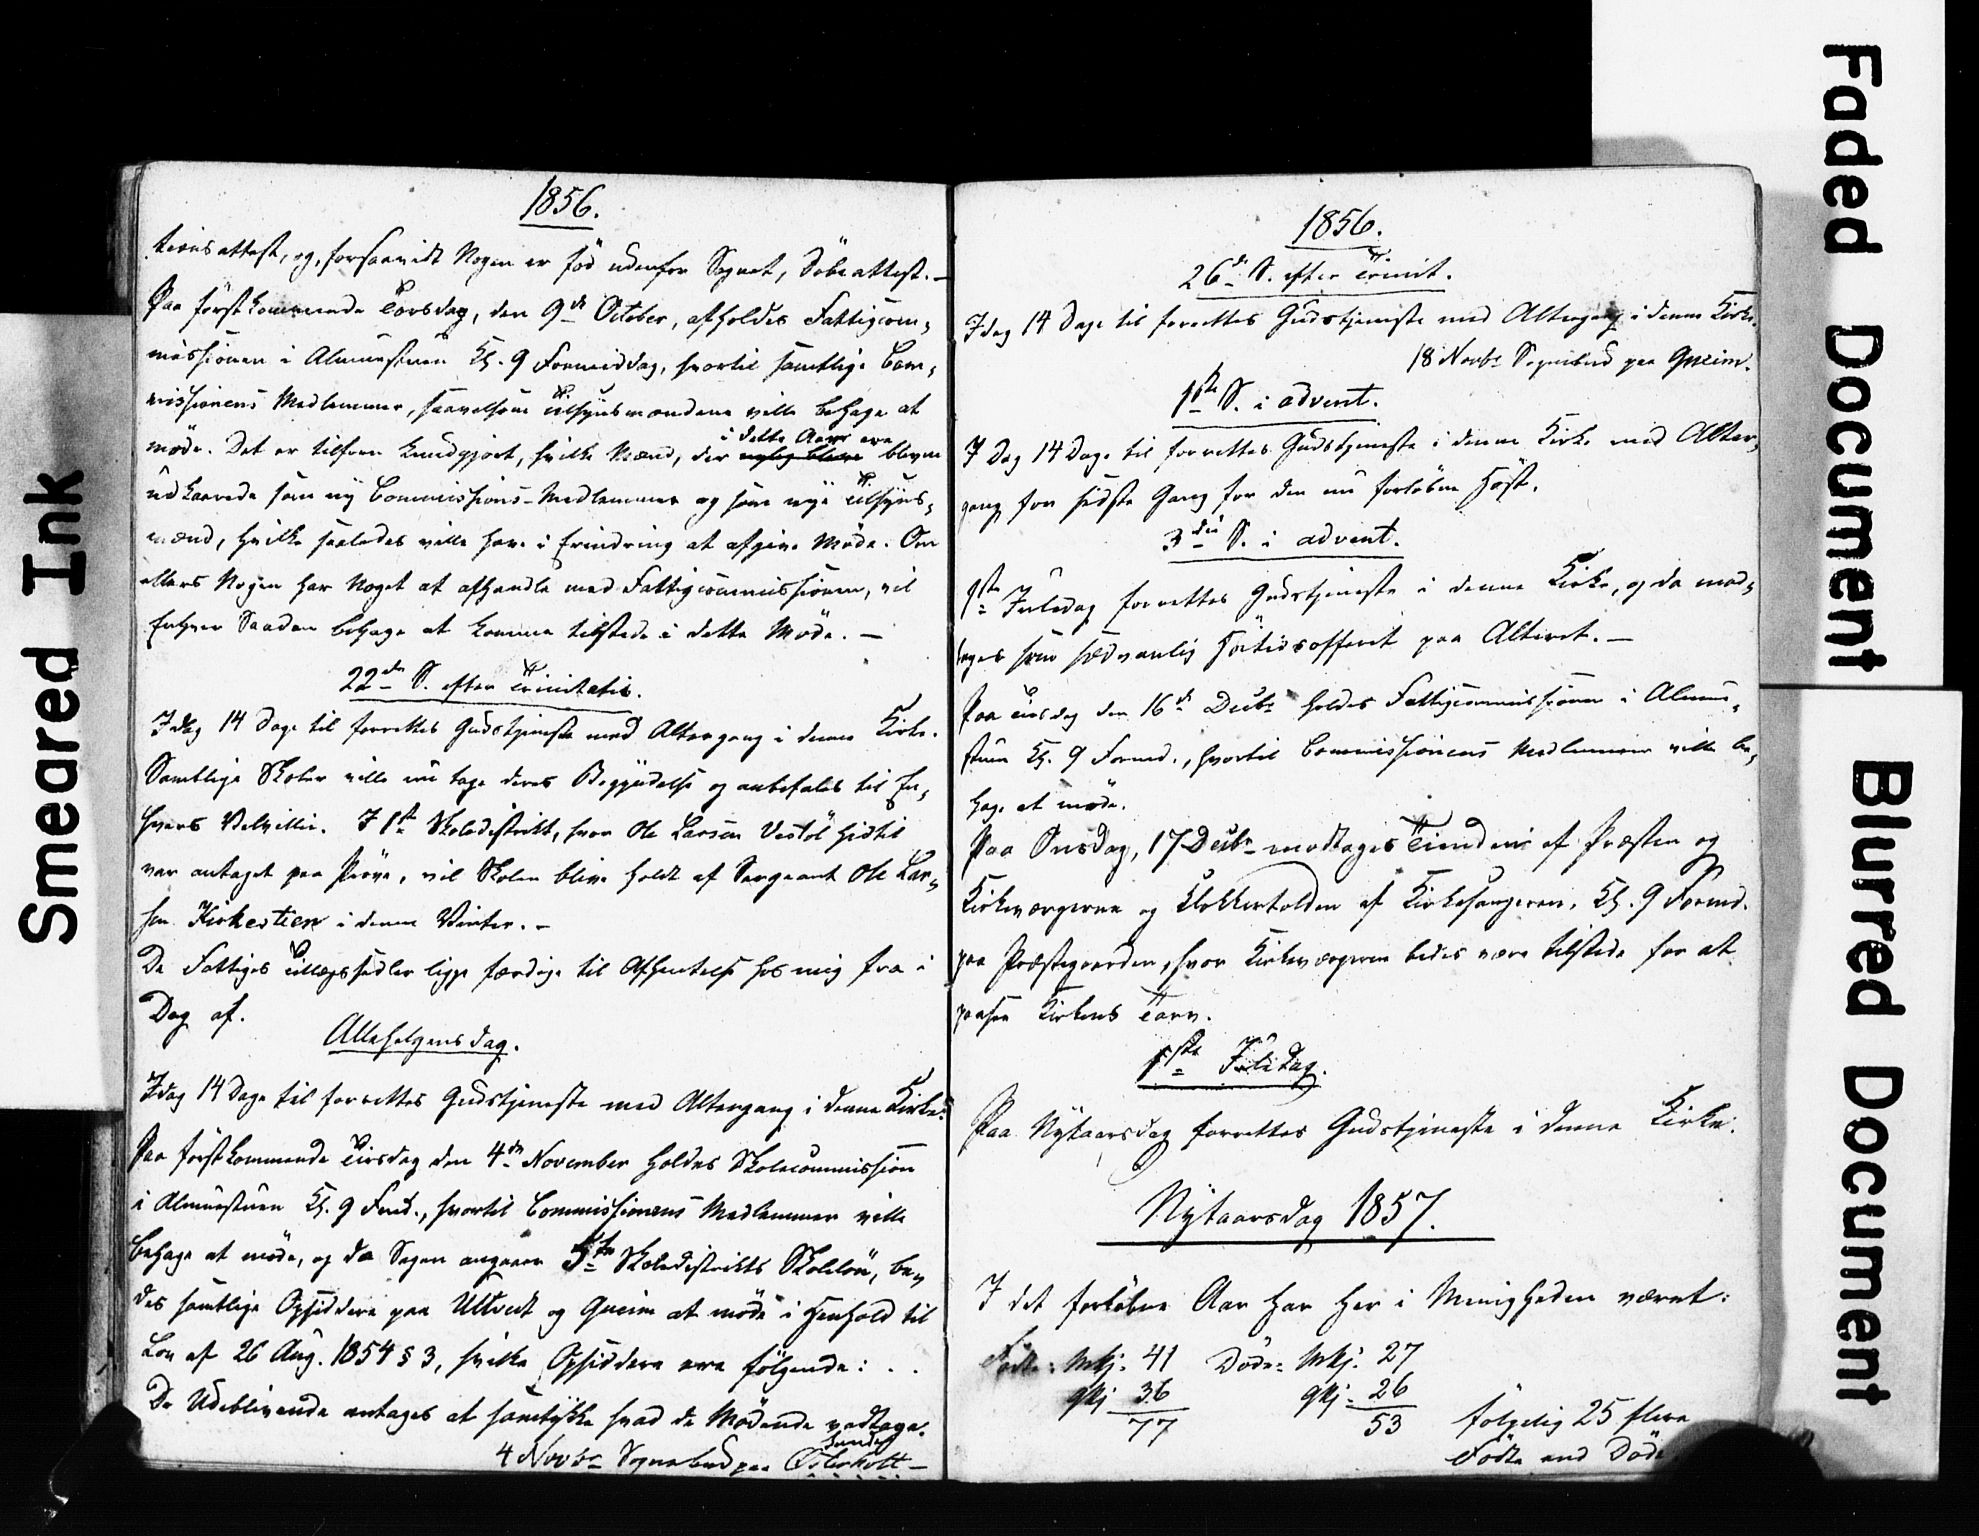 1856.
tionsattest, og, forsaavidt Nogen er fød udenfor Sognet, Døbeattest. —
Paa førstkommende Torsdag, den 9de October, afholdes Fattigcom-
missionen i Almuestuen Kl. 9 Formiddag, hvortil samtlige Com-
missionens Medlemmer, saavelsom Tilsynsmændene ville behage at
møde. Det er tilforn kundgjort, hvilke Mænd, der i dette Aar ere blevne
udkaarede som ny Commissions-Medlemmer og som nye Tilsyns-
mænd, hvilke saaledes ville have i Erindring at afgive Møde. Om
ellers Nogen har Noget at afhandle med Fattigcommissionen, vil
Enhver Saadan behage at komme tilstede i dette Møde. —
22de S. efter Trinitatis.
Idag 14 Dage til forrettes Gudstjeneste med Altergang i denne Kirke.
Samtlige Skoler ville nu tage deres Begyndelse og anbefales til En-
hvers Velvillie. I 1ste Skoledistrikt, hvor Ole Larsen Vestøl hidtil
var antaget paa Prøve, vil Skolen blive holdt af Sergeant Ole Lar-
sen Kirkestien i denne Vinter. —
De Fattiges Tillægssedler ligge færdige til Afhentelse hos mig fra i
Dag af.
Allehelgensdag.
Idag 14 Dage til forrettes Gudstjeneste med Altergang i denne Kirke.
Paa førstkommende Tirsdag den 4de November holdes Skolecommission
i Almuestuen Kl. 9 Fmd., hvortil Commissionens Medlemmer ville
behage at møde, og da Sagen angaaer 5te Skoledistrikts Skoleløn, be-
des samtlige Opsiddere paa Ulltveit og Gheim at møde i Henhold til
Lov af 26 Aug. 1854 § 3, hvilke Opsiddere ere følgende: . .
De Udeblivende antages at samtykke hvad de Mødende vedtage.
4 Novbr Sognebud paa Østerholt —
1856.
26de S. efter Trinit.
Idag 14 Dage til forrettes Gudstjeneste med Altergang i denne Kirke.
18 Novbr Sognebud paa Gheim.
1ste S. i advent.
I Dag 14 Dage til forrettes Gudstjeneste i denne Kirke med Alter-
gang for sidste Gang for den nu forløbne Høst.
3die S. i advent.
1ste Juledag forrettes Gudstjeneste i denne Kirke, og da mod-
tages som sædvanlig Høitidsofferet paa Alteret. —
Paa Tirsdag den 16de Decbr holdes Fattigcommissionen i Almue-
stuen Kl. 9 Formd., hvortil Commissionens Medlemmer ville be-
hage at møde.
Paa Onsdag, 17 Decbr modtages Tienden af Præsten og
Kirkeværgerne og Klokkertolden af Kirkesangeren, Kl. 9 Formd.
paa Præstegaarden, hvor Kirkeværgerne bedes være tilstede for at
paasee Kirkens Tarv.
1ste Juledag.
Paa Nytaarsdag forrettes Gudstjeneste i denne Kirke.
Nytaarsdag 1857.
I det forløbne Aar har her i Menigheden været:
Fødte: Mkj. 41 Døde: Mkj. 27
Qkj 36 Qkj. 26
77 53 følgelig 25 flere
Fødte end Døde
Smeared Ink
Faded Document
Blurred Document